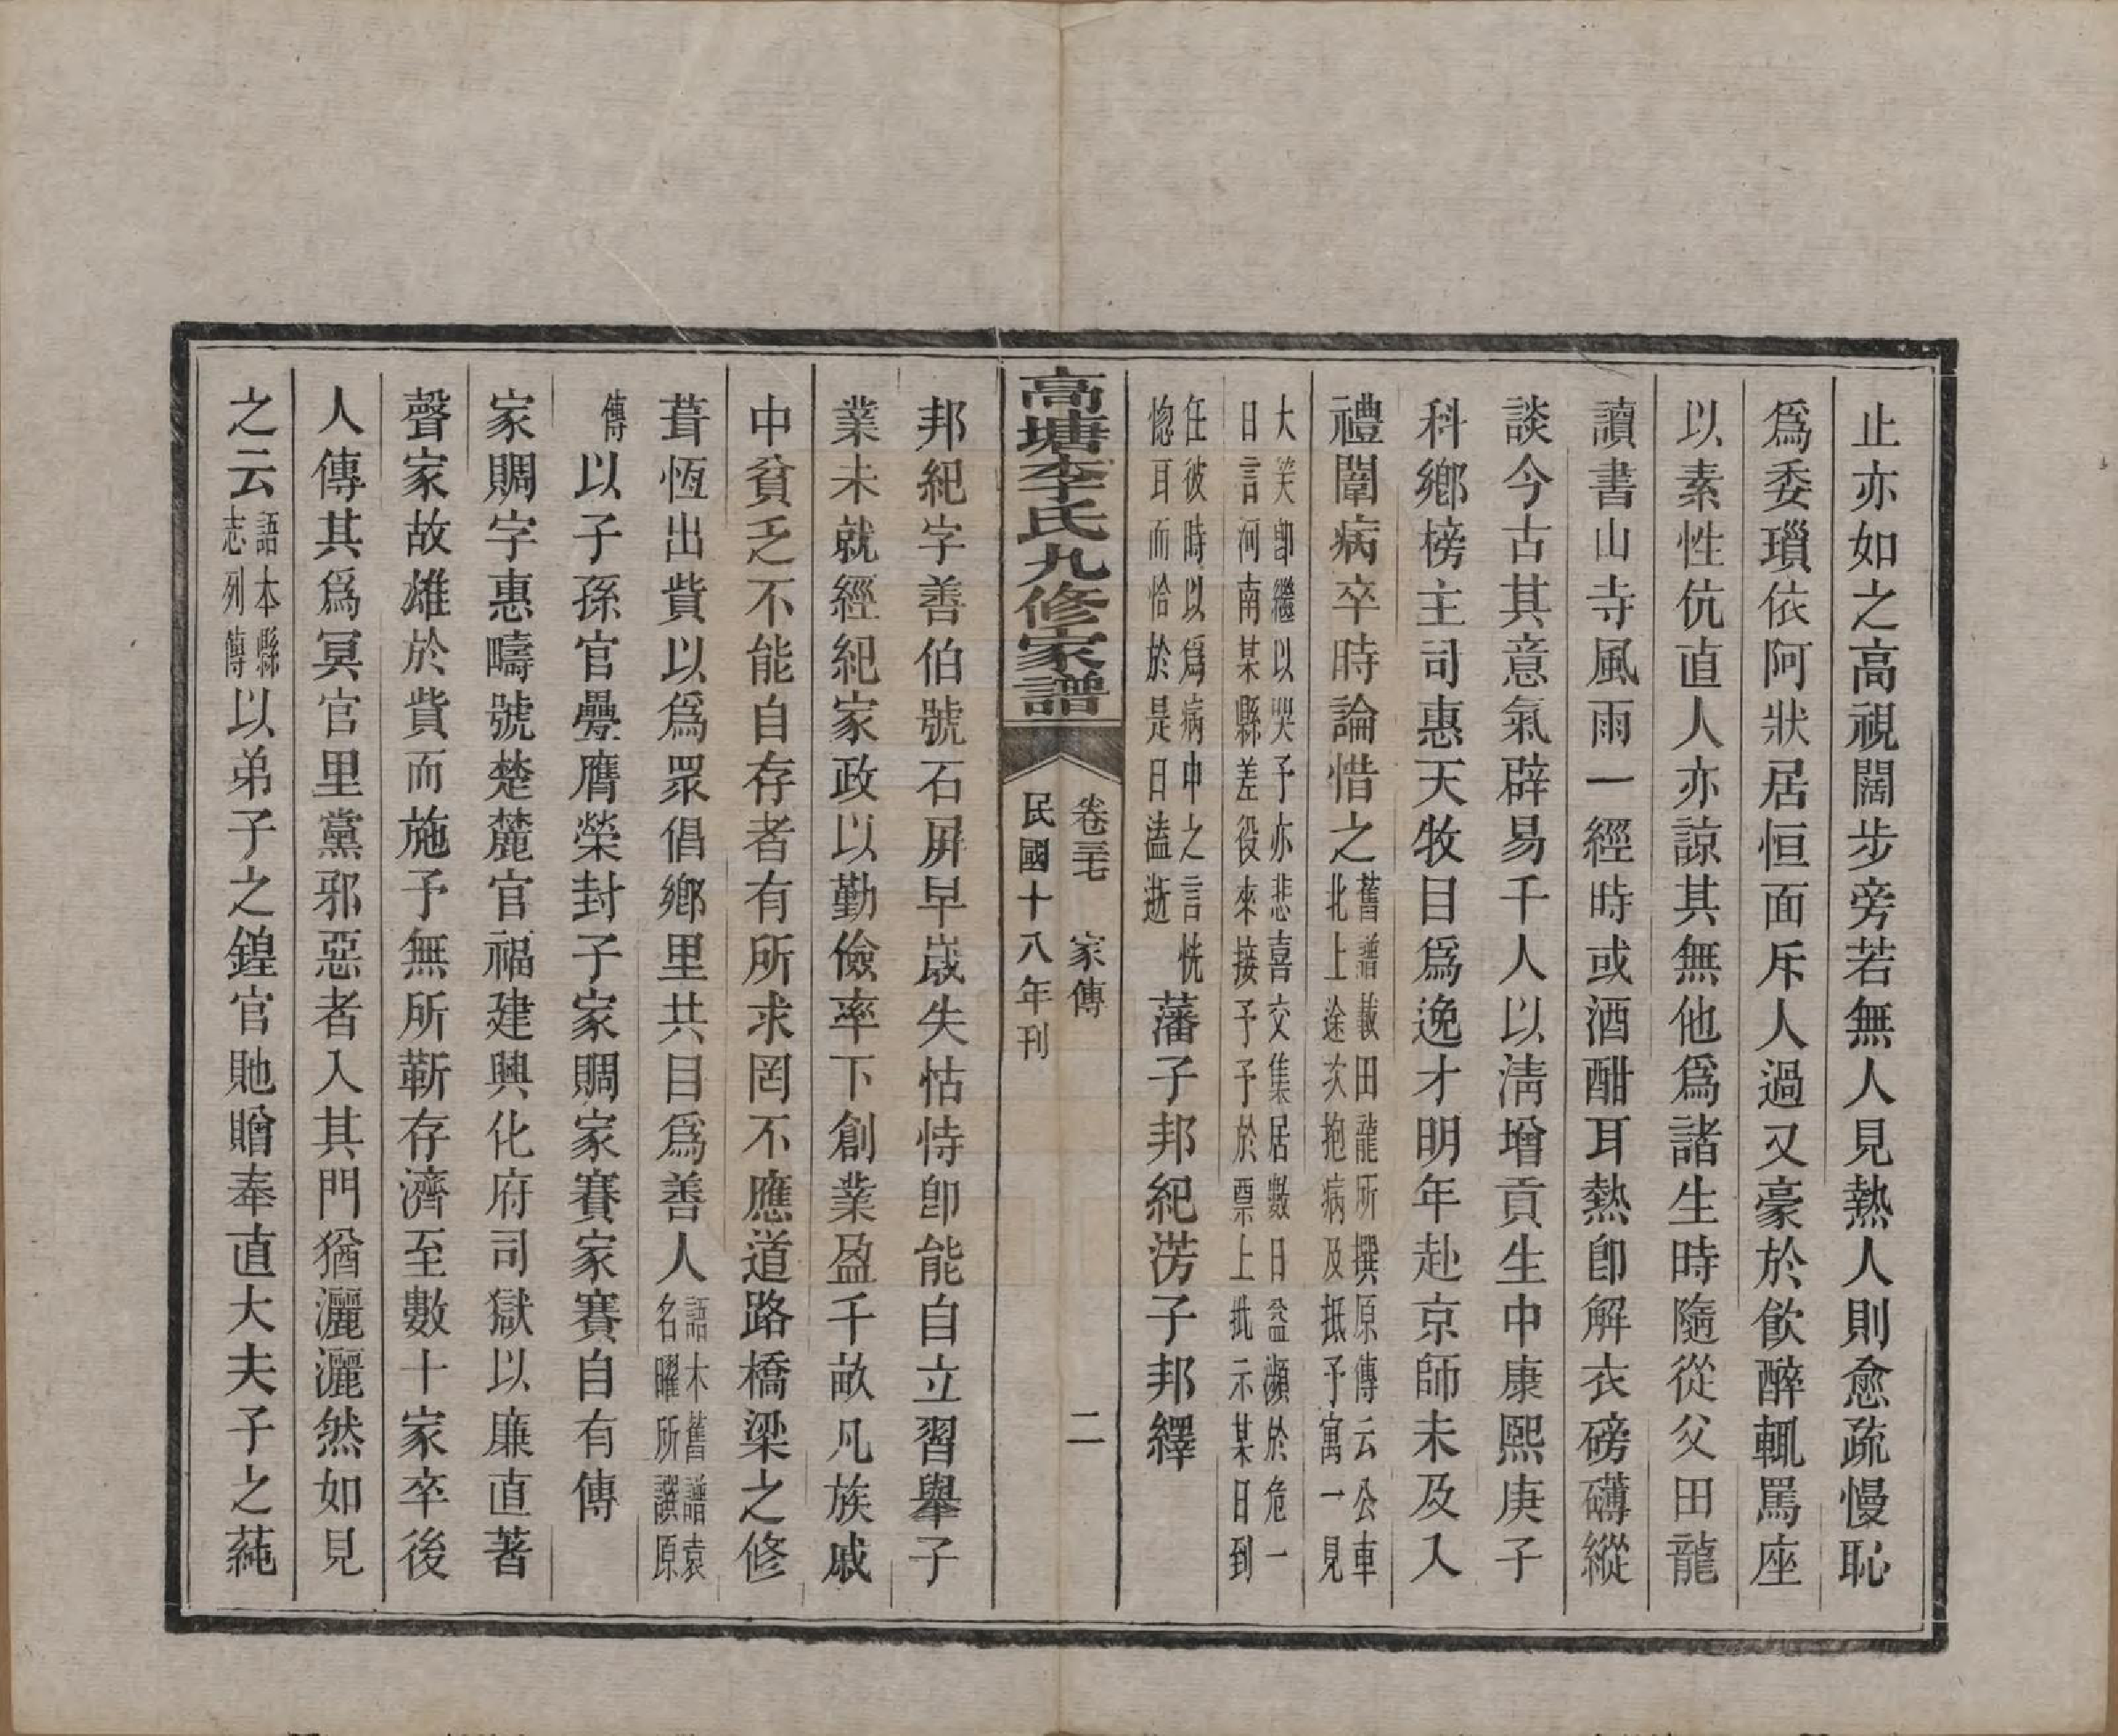 止亦如之高視闊步旁若無人見熱人則愈疏慢恥
爲委瑣依阿狀居恒面斥人過又豪於飮醉輒罵座
以素性伉直人亦諒其無他爲諸生時隨從父田龍
讀書山寺風雨一經時或酒酣耳熱卽解衣磅礴縱
談今古其意氣辟易千人以淸增貢生中康熙庚子
科鄉榜主司惠天牧目爲逸才明年赴京師未及入
禮闈病卒時論惜之舊譜載田龍所撰原傳云公車
北上途次抱病及抵予寓一見
大笑卽繼以哭予亦悲喜交集居數日益瀕於危一
日言河南某縣差役來接予予於票上批示某日到
任彼時以爲病中之言恍
惚耳而恰於是日溘逝藩子邦紀淓子邦繹
高塘李氏九修家譜
卷三七 家傳 二
民國十八年刊
邦紀字善伯號石屛早歲失怙恃卽能自立習舉子
業未就經紀家政以勤儉率下創業盈千畝凡族戚
中貧乏不能自存者有所求罔不應道路橋梁之修
葺恆出貲以爲眾倡鄉里共目爲善人語本舊譜袁
名曜所譔原
傳以子孫官疊膺榮封子家賙家賽家賽自有傳
家賙字惠疇號楚麓官福建興化府司獄以廉直著
聲家故雄於貲而施予無所靳存濟至數十家卒後
人傳其爲冥官里黨邪惡者入其門猶灑灑然如見
之云語本縣
志列傳以弟子之鍠官貤贈奉直大夫子之蒓